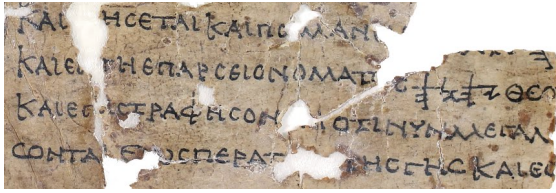 ΚΑΙ ΗϹΕΤΑΙ ΚΑΙ ΠΟ ΜΑΝ
ΚΑΙ Ε ΤΗ ΕΠΑΡϹΕΙ ΟΝΟΜΑΤ Ϲ 𐤉𐤄𐤅𐤄 ΘΕΟ
ΚΑΙ ΕΠ ϹΤΡΑΦΗϹΟΝ ΟΤΙ ΝΥΝ ΜΕΓΑΛ
ϹΟΝΤΑ Ε Ϲ ΠΕΡΑΤ ΤΗϹ ΓΗϹ ΚΑΙ ΕϹ